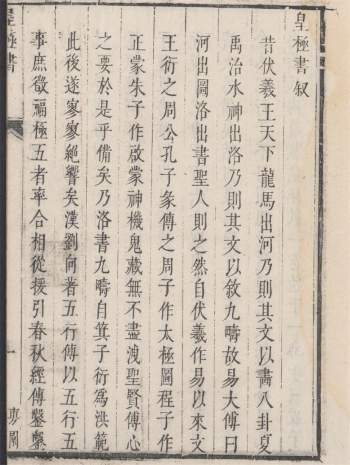 皇極書叙
昔伏羲王天下龍馬出河乃則其文以畫八卦夏
禹治水神出洛乃則其文以敘九疇故易大傳曰
河出圖洛出書聖人則之然自伏羲作易以來文
王衍之周公孔子彖傳之周子作太極圖程子作
正蒙朱子作啟蒙神機鬼藏無不盡洩聖賢傳心
之要於是乎備矣乃洛書九疇自箕子衍為洪範
此後遂寥寥絕響矣漢劉向著五行傳以五行五
事庶徵福極五者率合相從援引春秋經傳鑿鑿
皇極書
一